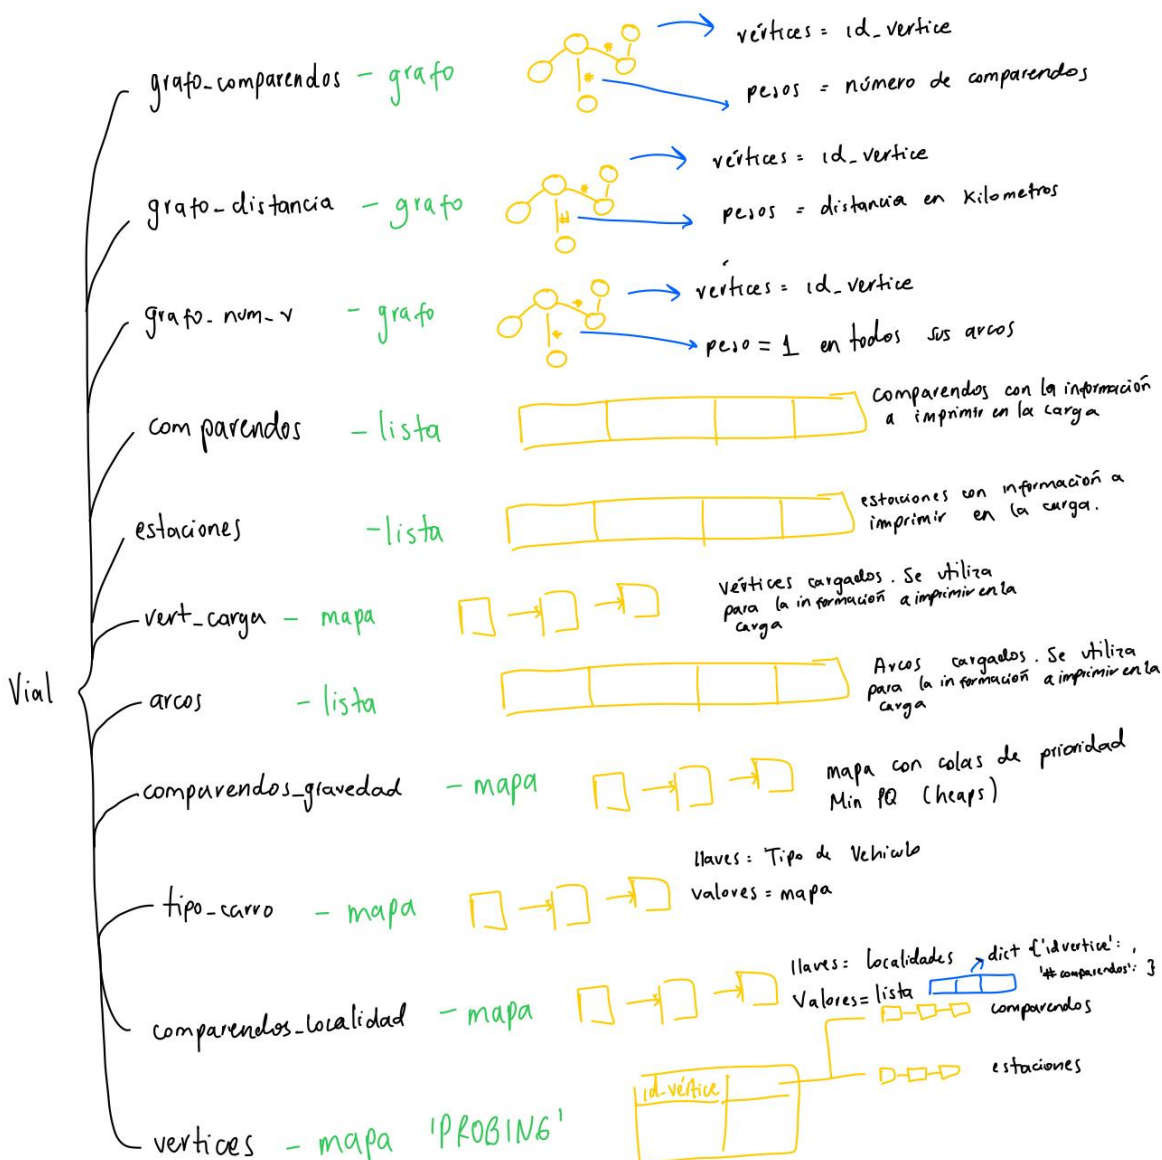 Vial
grafo_comparendos - grafo
vértices = id_vertice
pesos = número de comparendos
grafo_distancia - grafo
vértices = id_vertice
pesos = distancia en Kilometros
grafo_num_v - grafo
vértices = id_vertice
peso = 1 en todos sus arcos
comparendos - lista
comparendos con la información
a imprimir en la carga
estaciones - lista
estaciones con información a
imprimir en la carga.
vert_carga - mapa
vértices cargados. Se utiliza
para la información a imprimir en la
carga
arcos - lista
Arcos cargados. Se utiliza
para la información a imprimir en la
carga
comparendos_gravedad - mapa
mapa con colas de prioridad
Min PQ (heaps)
tipo_carro - mapa
llaves = Tipo de Vehiculo
valores = mapa
comparendos_localidad - mapa
llaves = Localidades
Valores = lista
dict {'idvertice': ,
'# comparendos': }
vertices - mapa 'PROBING'
id-vértice
comparendos
estaciones